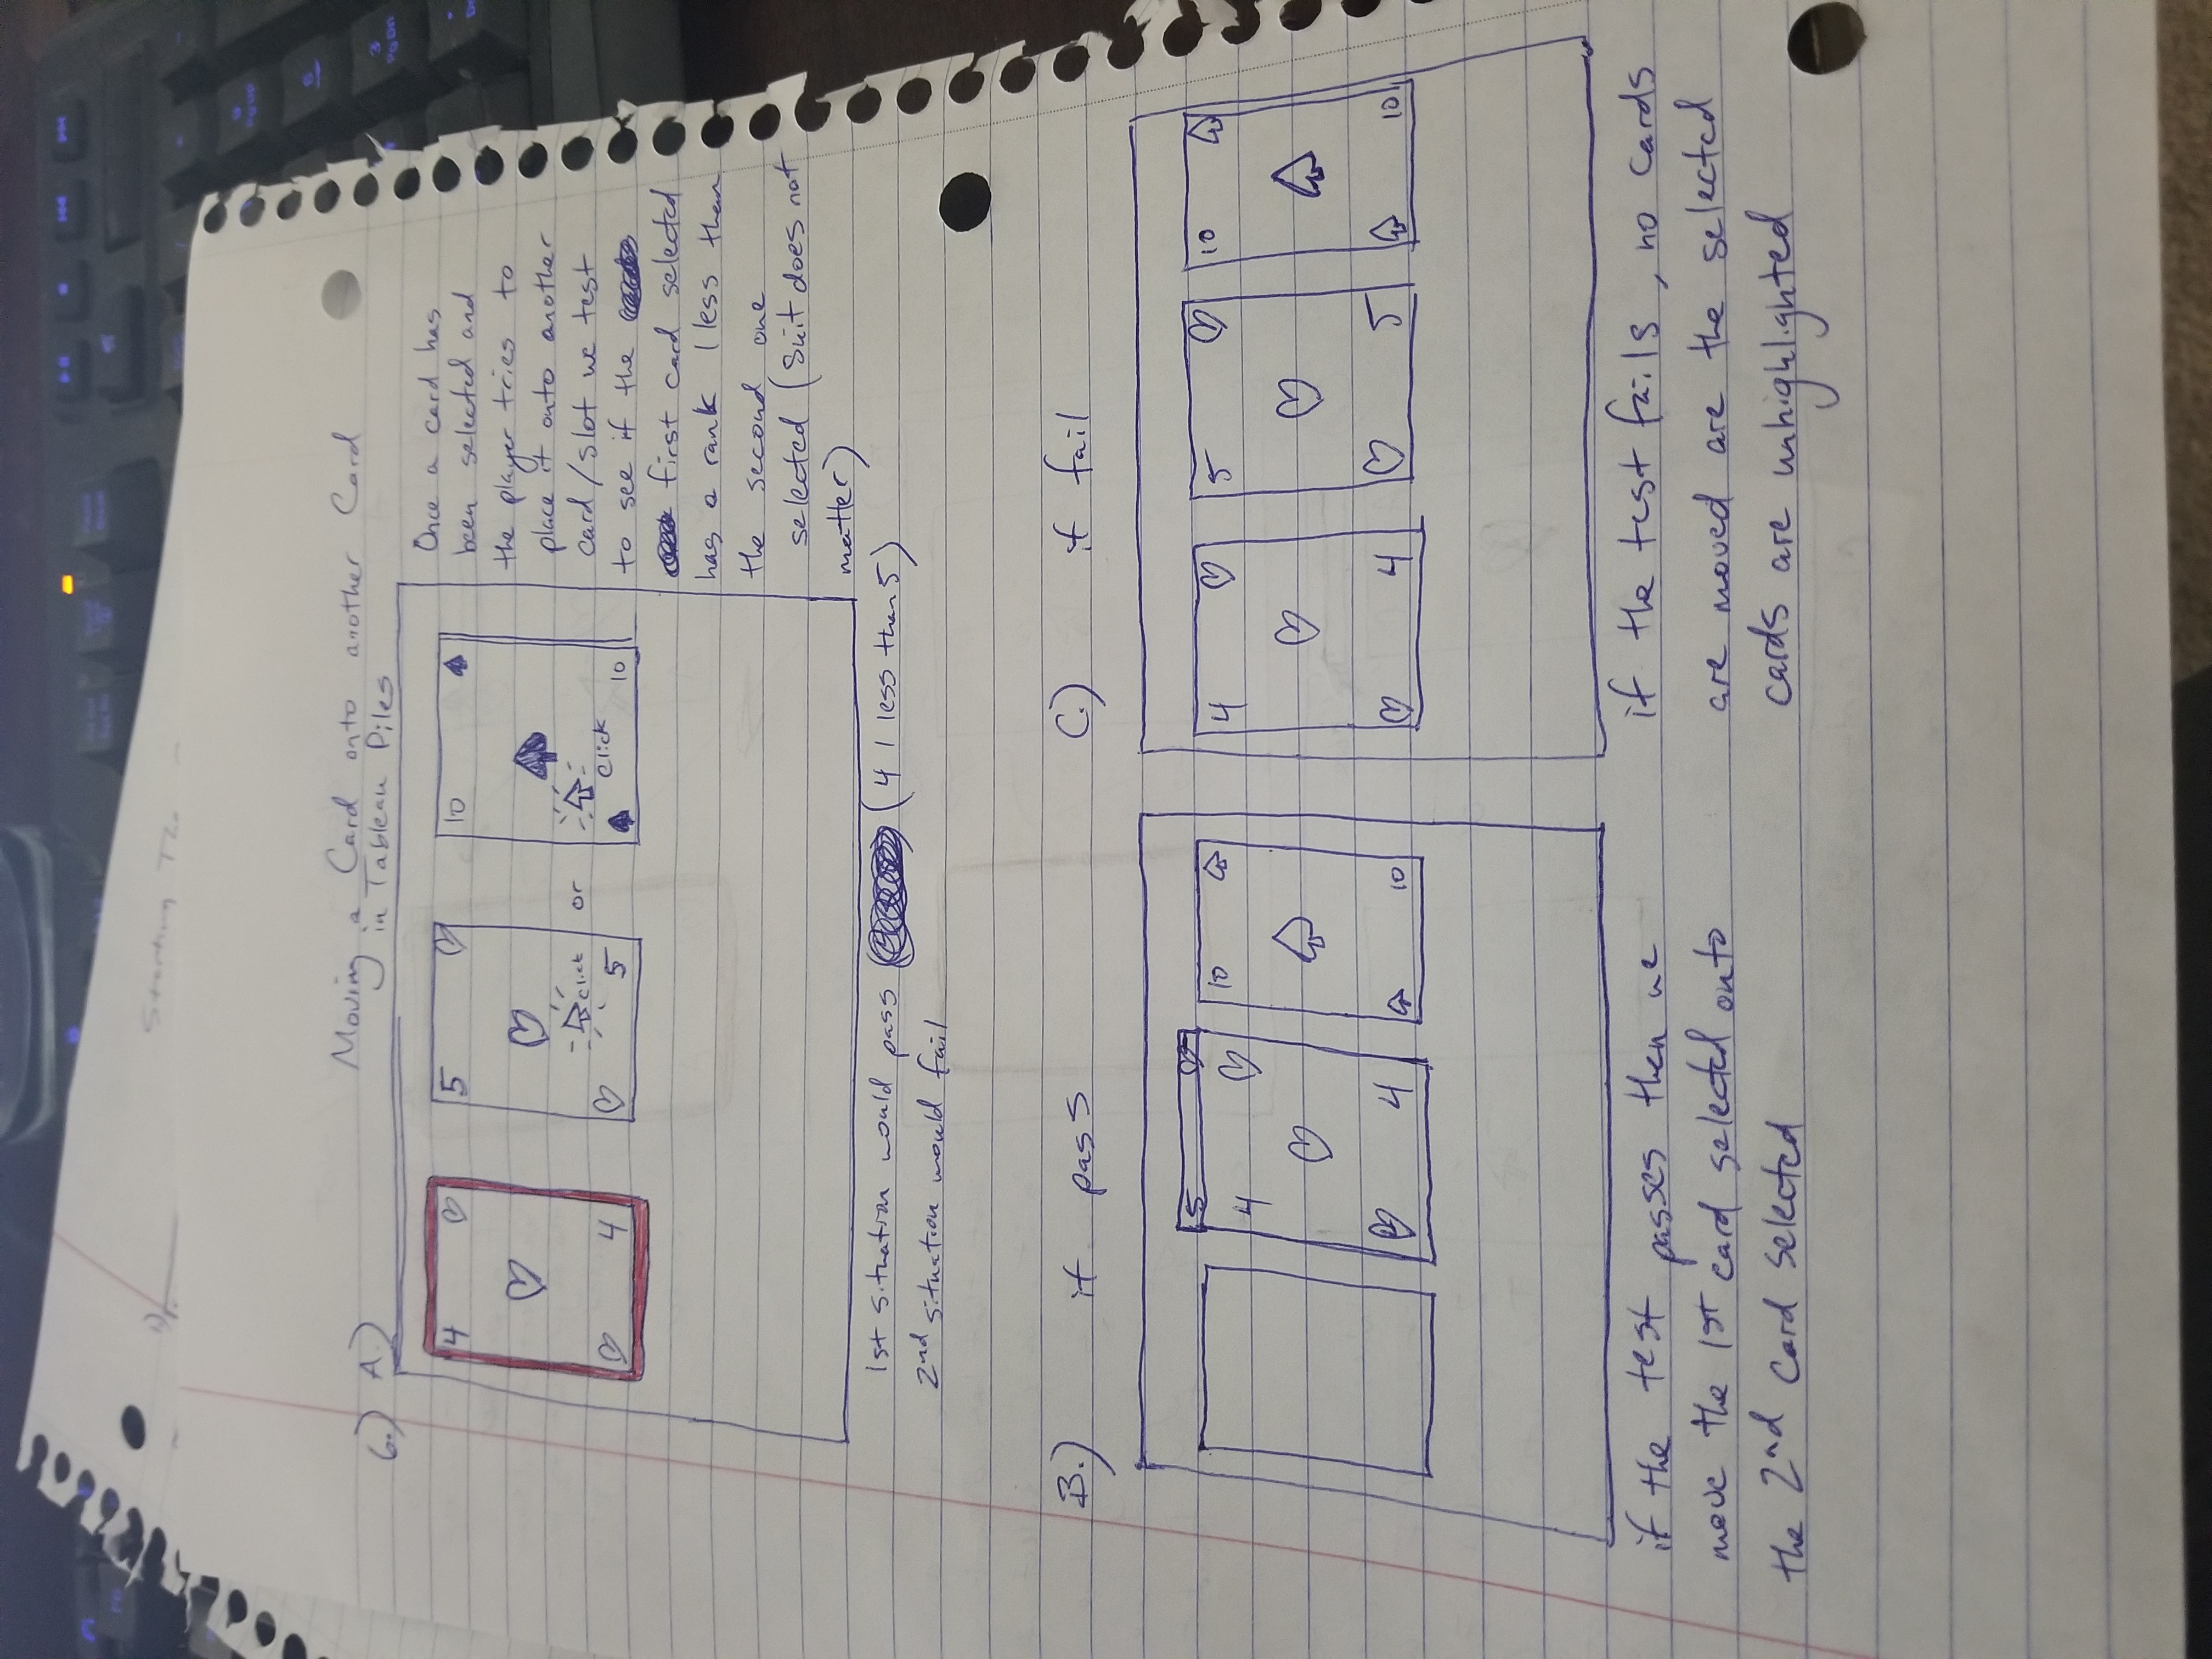 Starting
Moving a Card onto another Card
in Tableau Piles
6.) A.)
4
4
5
click
5
or
10
click
10
Once a card has
been selected and
the player tries to
place it onto another
card/slot we test
to see if the
first card selected
has a rank 1 less than
the second one
selected (Suit does not
matter)
1st situation would pass (4 1 less than 5)
2nd situation would fail
B.) if pass
5
4
4
10
10
if the test passes then we
move the 1st card selected onto
the 2nd card selected
C.) if fail
4
4
5
5
10
10
if the test fails, no cards
are moved are the selected
cards are unhighlighted